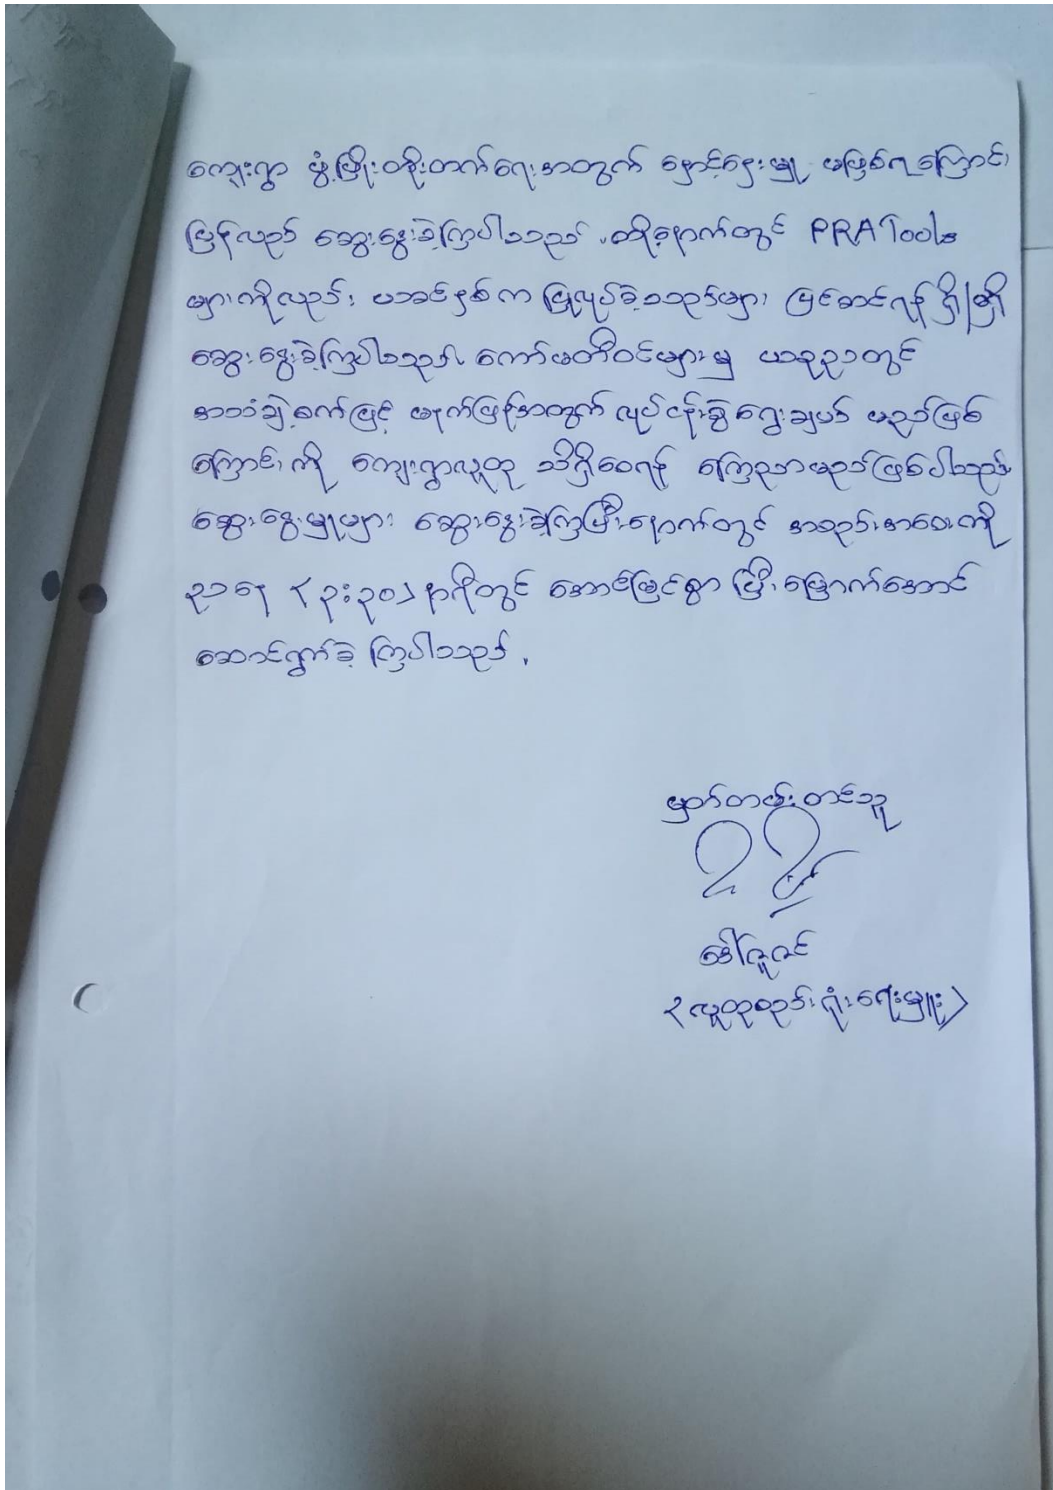 ကျေးရွာ ဖွံ့ဖြိုးတိုးတက်ရေးအတွက် နှောင့်နှေးမှု မဖြစ်ရကြောင်း
ပြန်လည် ဆွေးနွေးခဲ့ကြပါသည်။ ထို့နောက်တွင် PRA Tools
များကိုလည်း ယခင်နှစ်က ပြုလုပ်ခဲ့သည်များ ပြင်ဆင်ရန် ရှိ/မရှိ
ဆွေးနွေးခဲ့ကြပါသည်။ ကော်မတီဝင်များမှ ယနေ့ညတွင်
အသံချဲ့စက်ဖြင့် မနက်ဖြန်အတွက် လုပ်ငန်းခွဲရွေးချယ် မည်ဖြစ်
ကြောင်းကို ကျေးရွာလူထု သိရှိစေရန် ကြေညာမည်ဖြစ်ပါသည်။
ဆွေးနွေးမှုများ ဆွေးနွေးခဲ့ကြပြီးနောက်တွင် အစည်းအဝေးကို
ညနေ (၃:၃၀) နာရီတွင် အောင်မြင်စွာ ပြီးမြောက်အောင်
ဆောင်ရွက်ခဲ့ ကြပါသည်။
မှတ်တမ်းတင်သူ
ဒေါ်ဇူဇင်
(လူထုစည်းရုံးရေးမှူး)